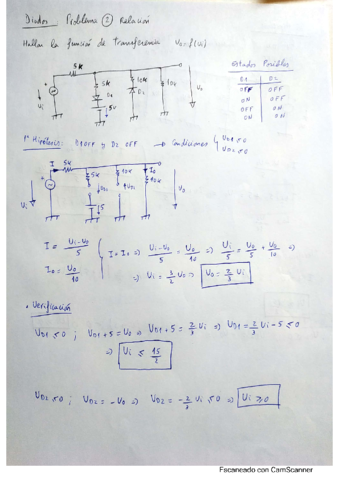 Diodos Problema ② Relación
Hallar la función de transferencia Uo=f(Ui)
5K
5K
10K
10K
D1
D2
5V
Ui
Uo
Estados Posibles
D1 D2
OFF OFF
ON OFF
OFF ON
ON ON
1ª Hipótesis: D1 OFF y D2 OFF → Condiciones { UD1 ≤ 0
UD2 ≤ 0
I 5K
5K
10K
Io
10K
UD1
UD2
5
Ui
Uo
I = (Ui-Uo)/5
Io = Uo/10
I = Io => (Ui-Uo)/5 = Uo/10 => Ui/5 = Uo/5 + Uo/10 =>
=> Ui = 3/2 Uo => Uo = 2/3 Ui
• Verificación
UD1 ≤ 0 ; UD1+5 = Uo => UD1+5 = 2/3 Ui => UD1 = 2/3 Ui - 5 ≤ 0
=> Ui ≤ 15/2
UD2 ≤ 0 ; UD2 = -Uo => UD2 = -2/3 Ui ≤ 0 => Ui ≥ 0
Escaneado con CamScanner